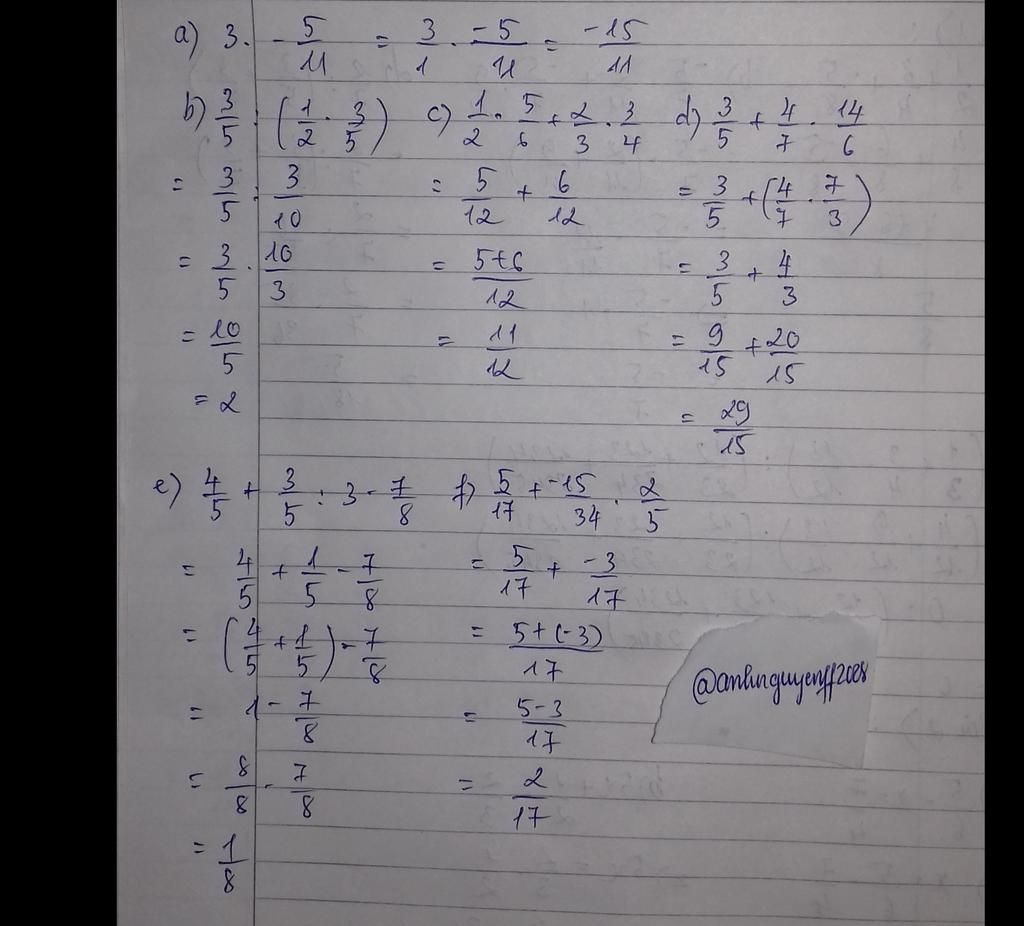 a) 3. -5/11 = 3/1 . -5/11 = -15/11
b) 3/5 : (1/2 . 3/5)
= 3/5 : 3/10
= 3/5 . 10/3
= 10/5
= 2
c) 1/2 . 5/6 + 2/3 . 3/4
= 5/12 + 6/12
= 5+6/12
= 11/12
d) 3/5 + 4/7 . 14/6
= 3/5 + (4/7 . 7/3)
= 3/5 + 4/3
= 9/15 + 20/15
= 29/15
e) 4/5 + 3/5 : 3 - 7/8
= 4/5 + 1/5 - 7/8
= (4/5 + 1/5) - 7/8
= 1 - 7/8
= 8/8 - 7/8
= 1/8
f) 5/17 + -15/34 . 2/5
= 5/17 + -3/17
= 5+(-3)/17
= 5-3/17
= 2/17